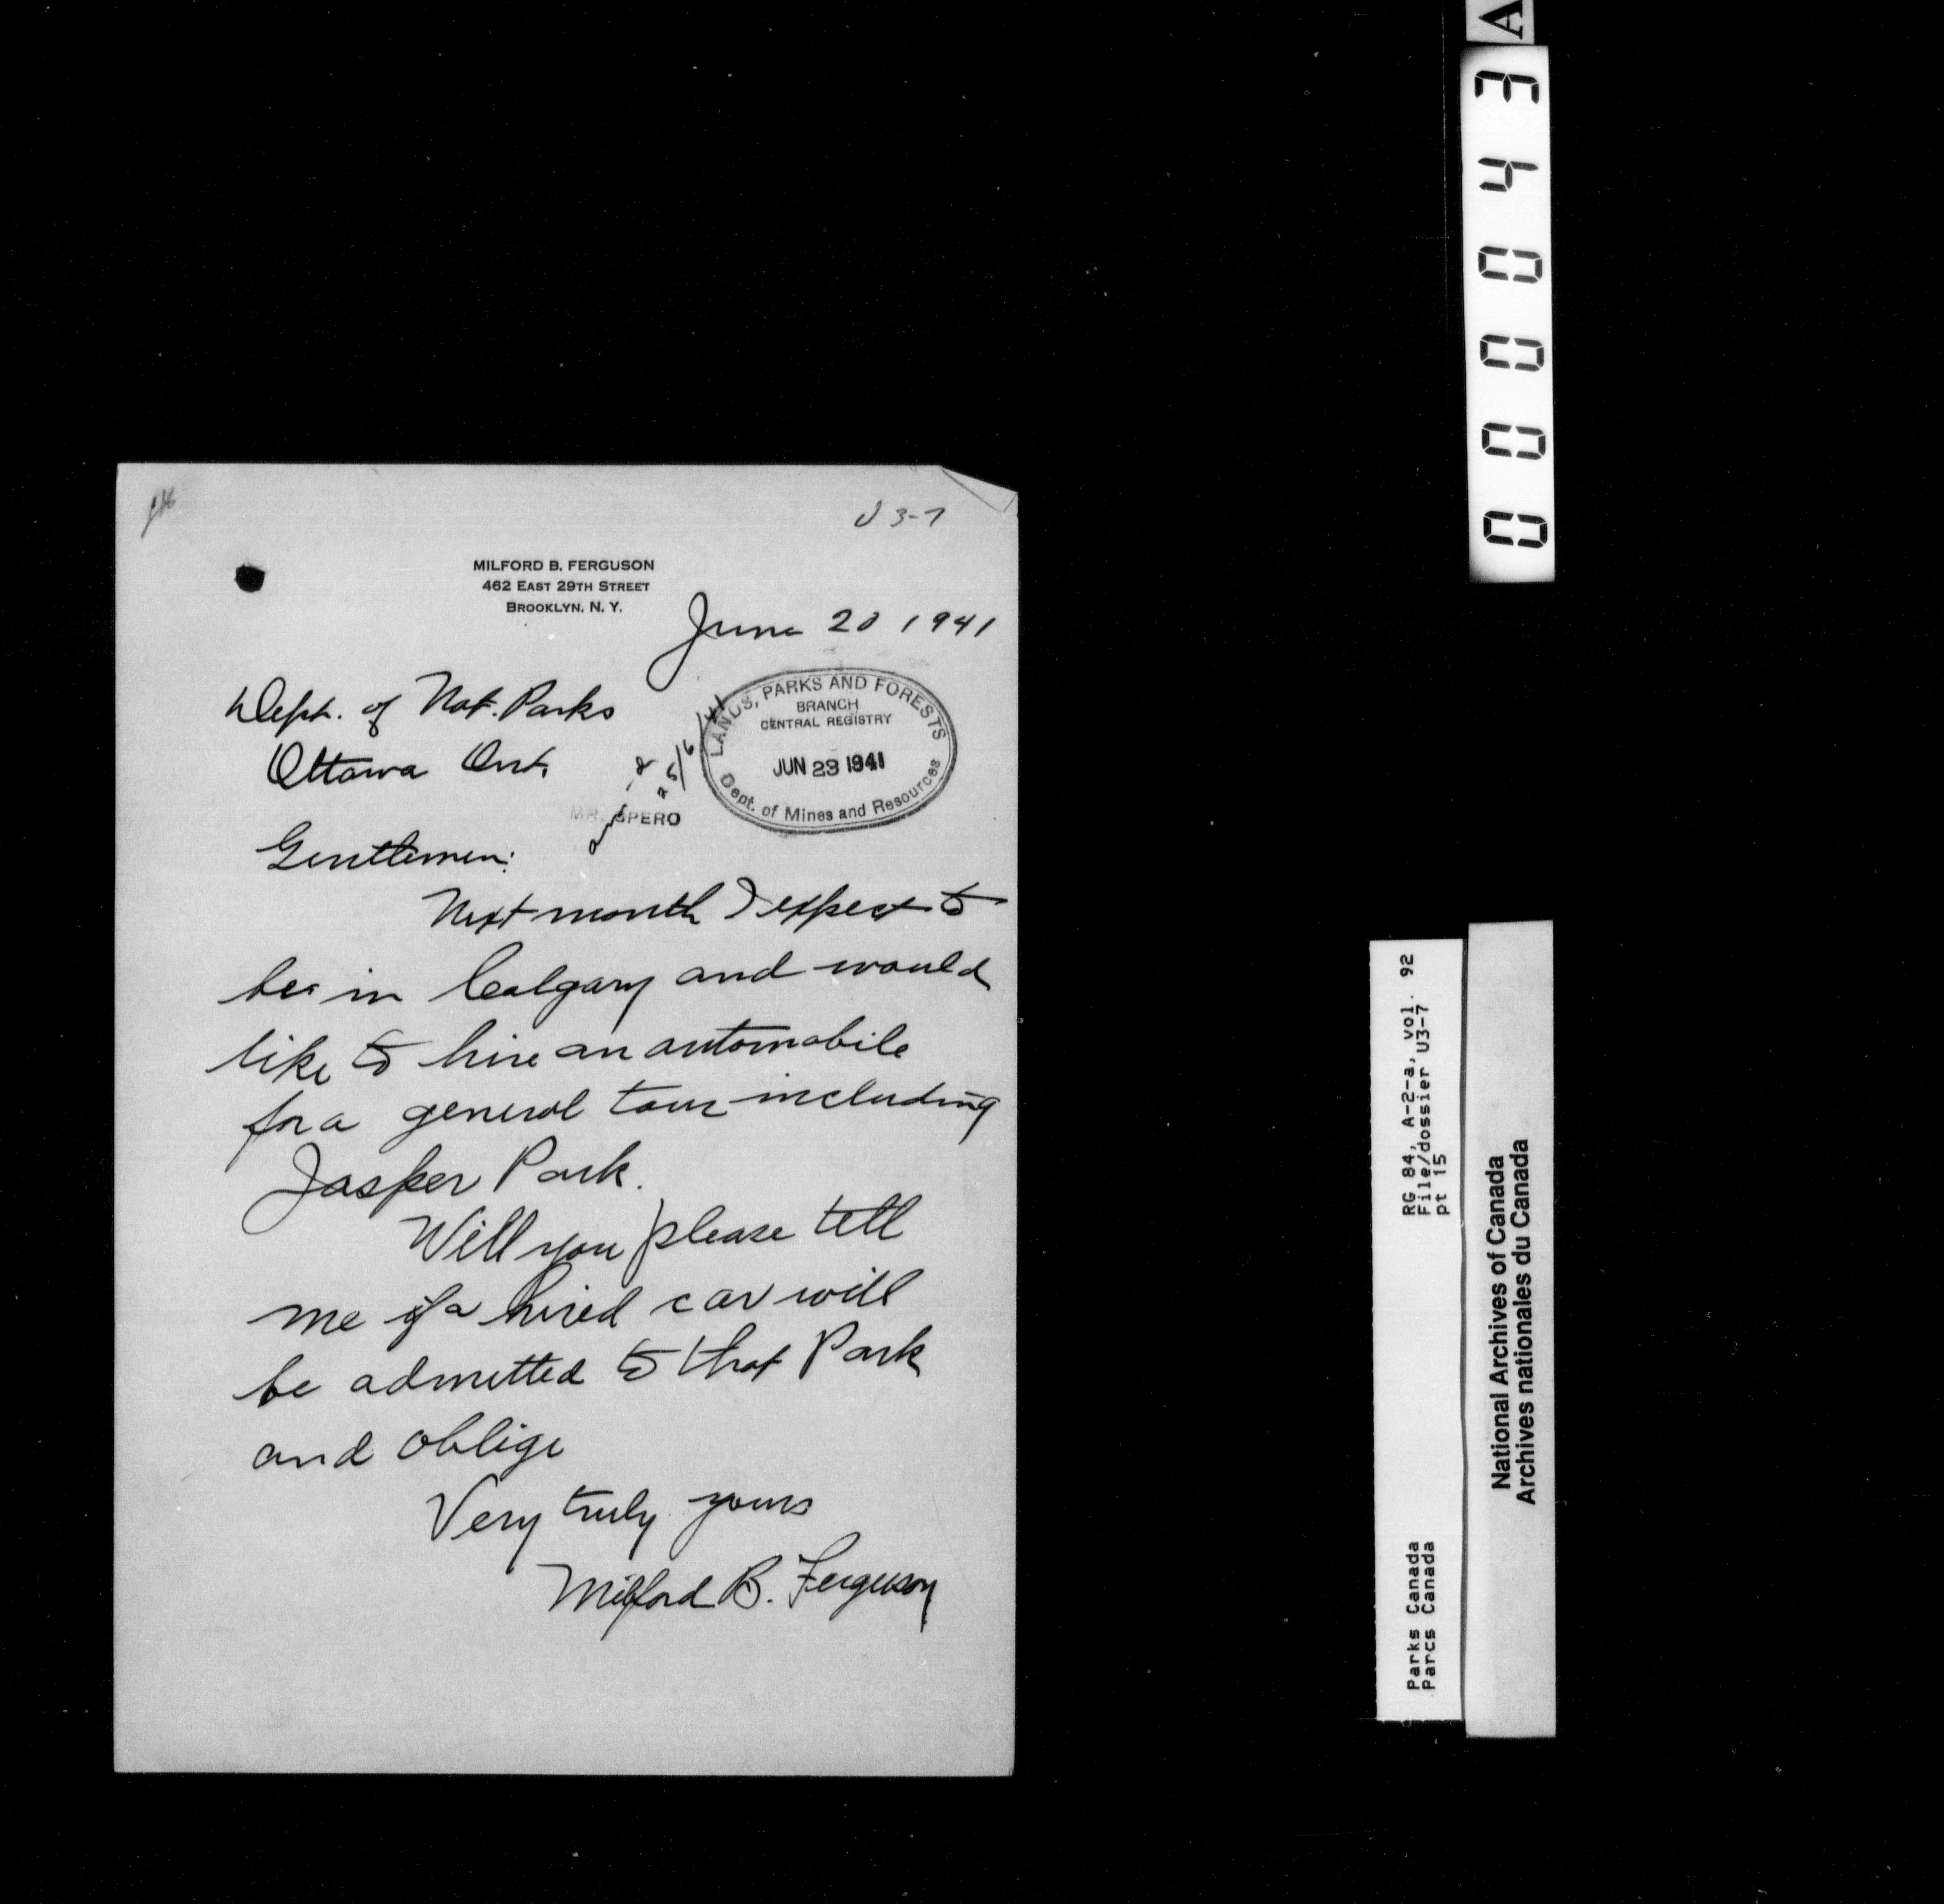 U3-7
MILFORD B. FERGUSON
462 EAST 29TH STREET
BROOKLYN, N. Y.
June 20 1941
Dept. of Nat. Parks
Ottawa Ont.
LANDS, PARKS AND FORESTS
BRANCH
CENTRAL REGISTRY
JUN 23 1941
Dept. of Mines and Resources
MR. SPERO
Gentlemen:
Next month I expect to
be in Calgary and would
like to hire an automobile
for a general tour including
Jasper Park.
Will you please tell
me if a hired car will
be admitted to that Park
and oblige
Very truly yours
Milford B. Ferguson
000043
A
RG 84, A-2-a, vol. 92
File/dossier U3-7
pt 15
Parks Canada
Parcs Canada
National Archives of Canada
Archives nationales du Canada